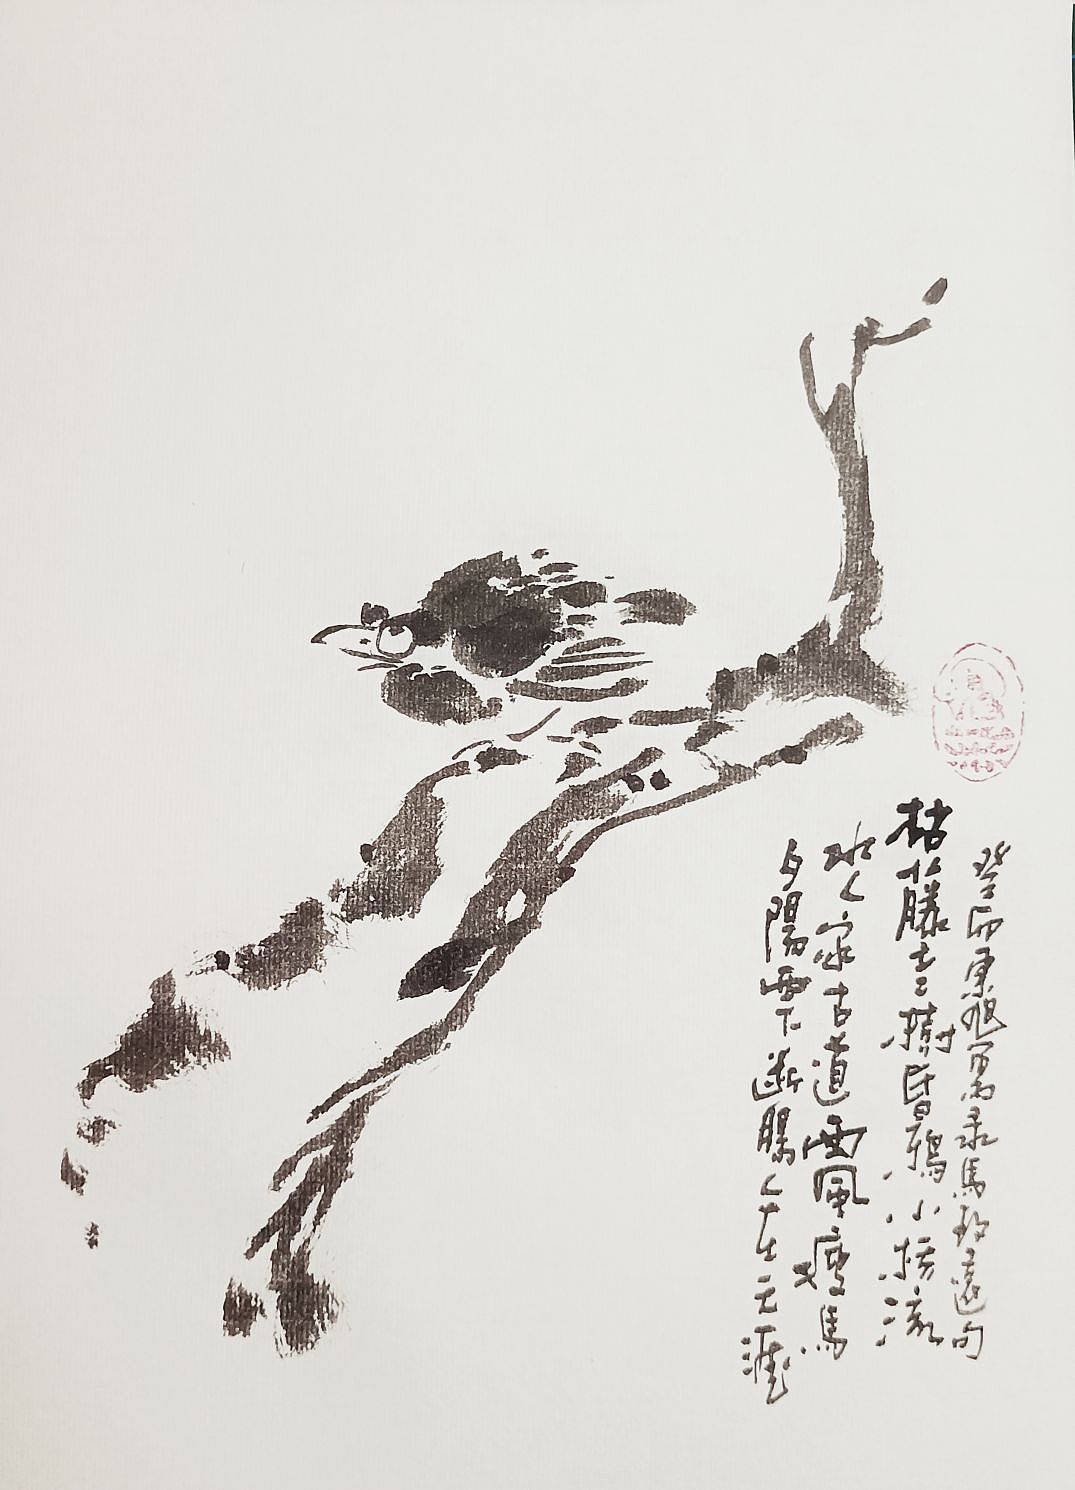 癸卯東旭寫录馬致遠句
枯藤老樹昏鴉小橋流
水人家古道西風瘦馬
夕陽西下断腸人在天涯